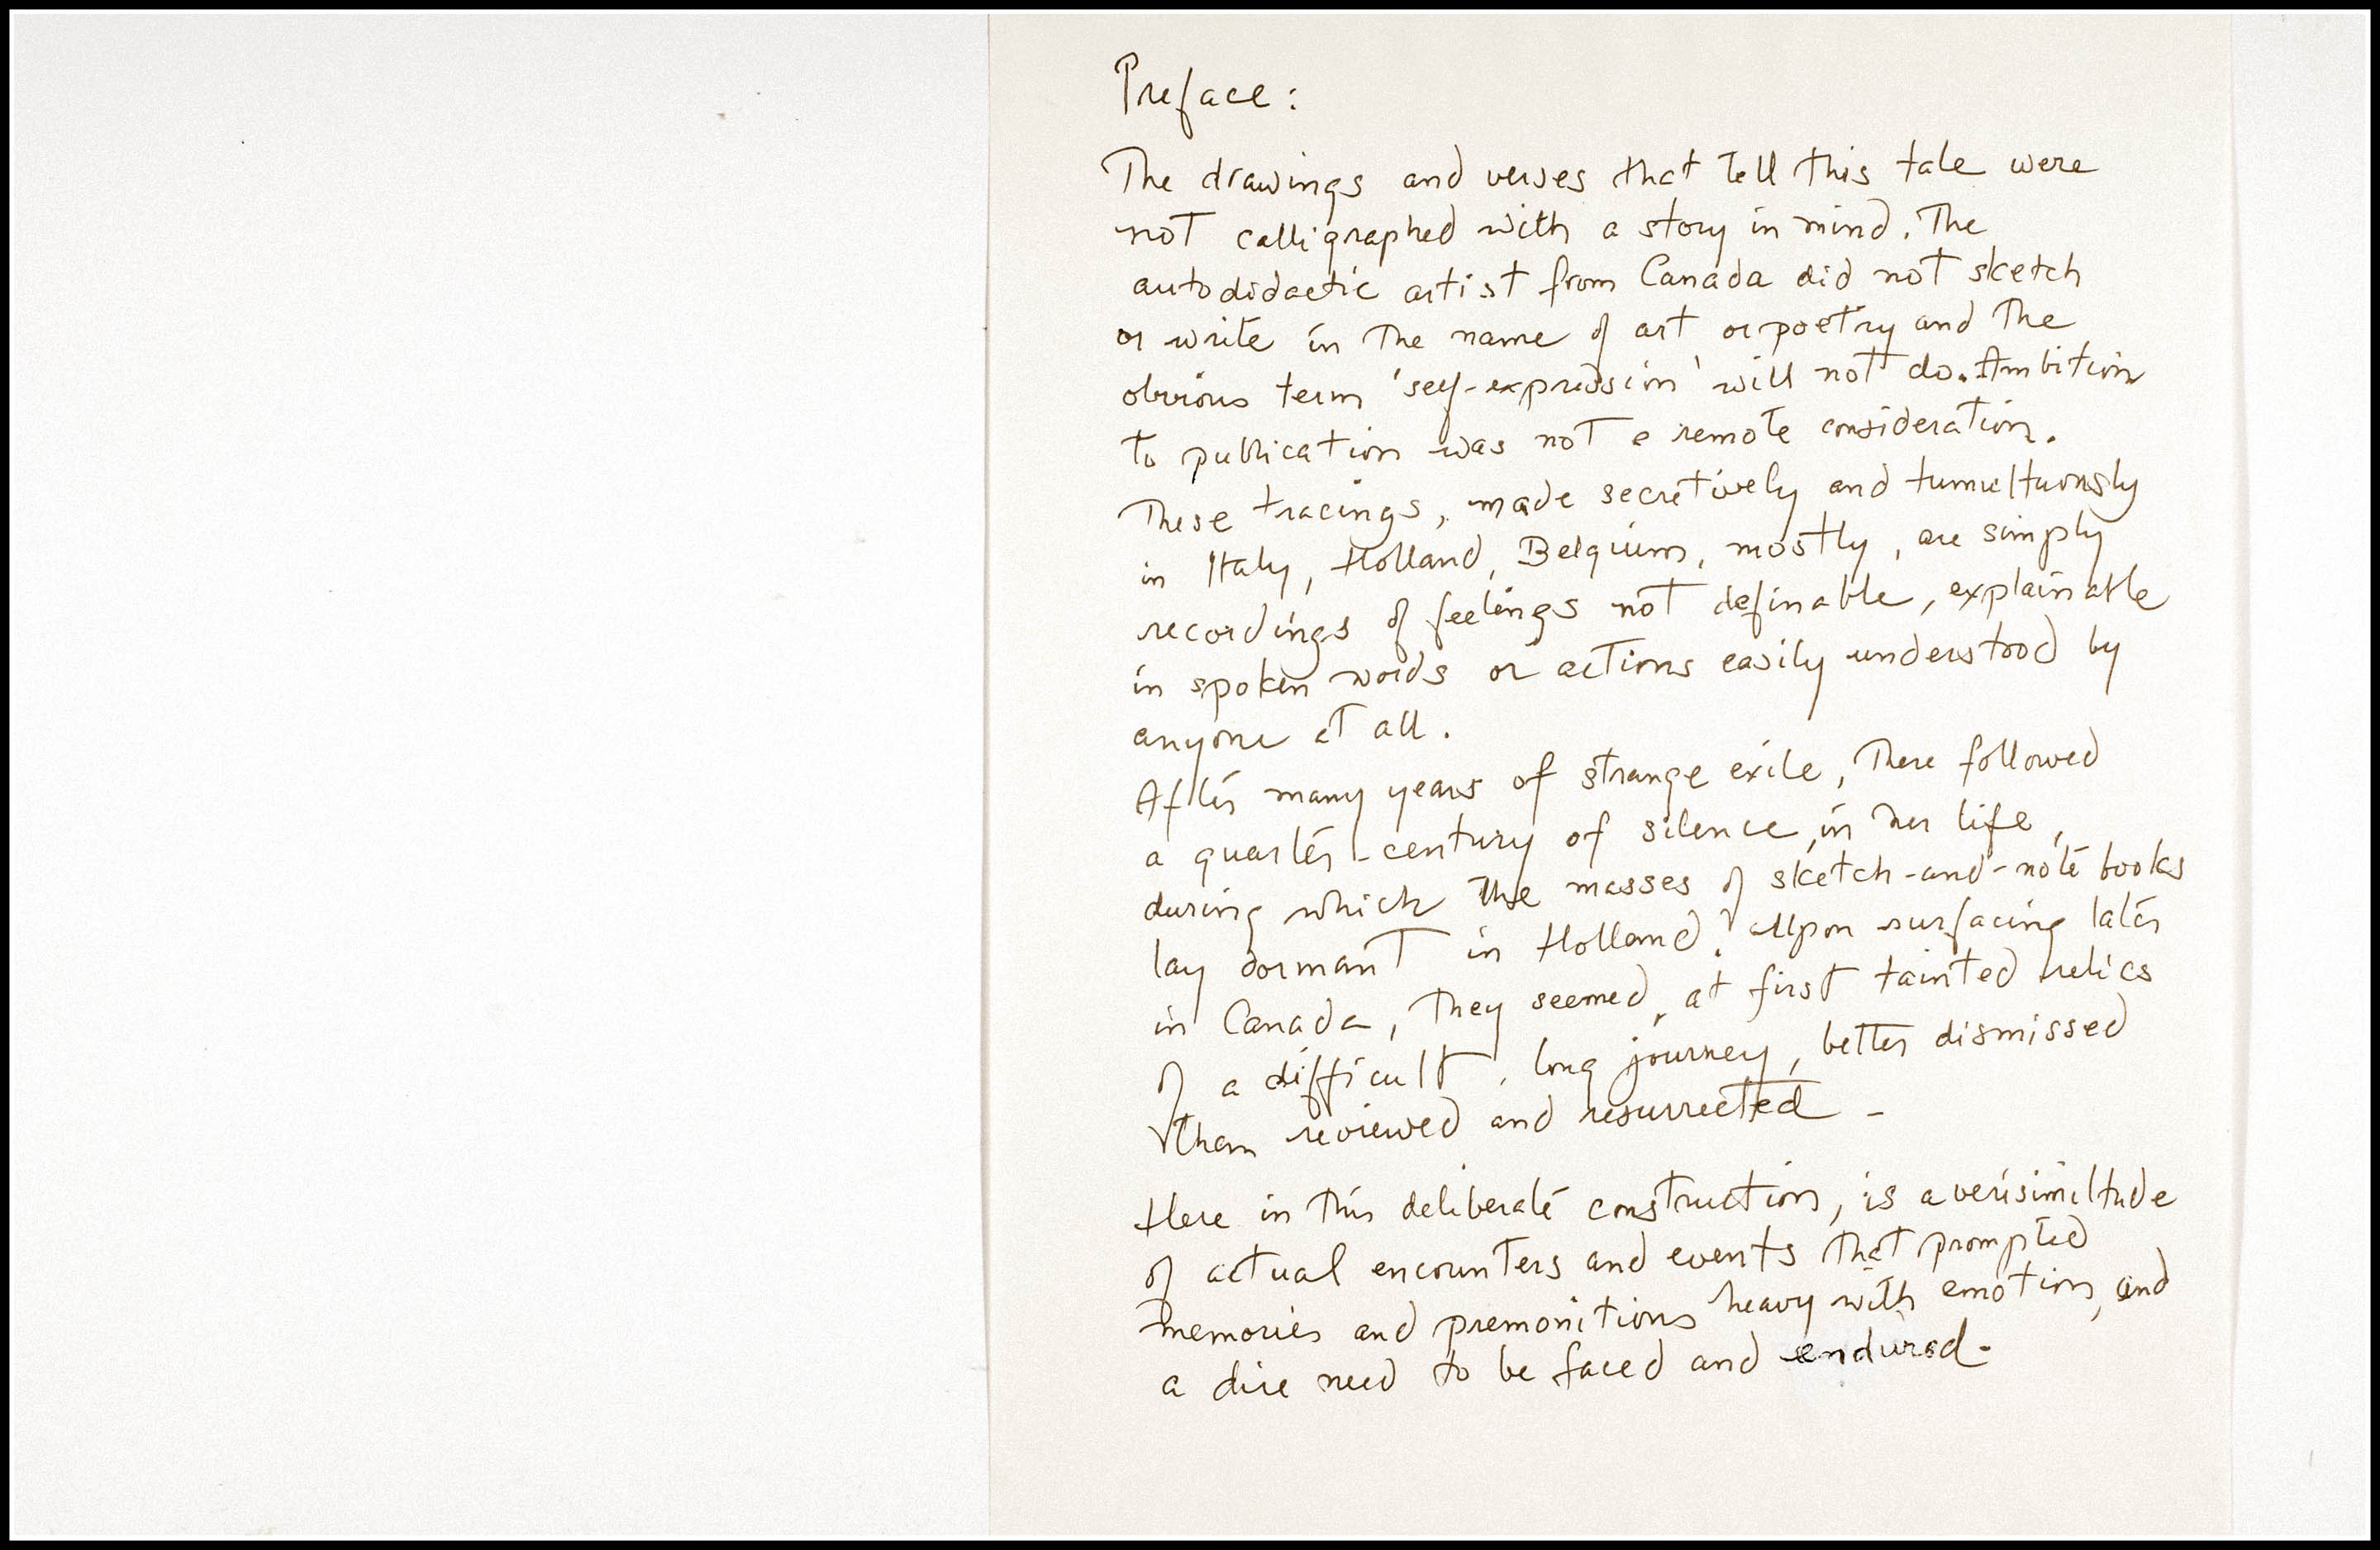 Preface:
The drawings and verses that tell this tale were
not calligraphed with a story in mind. The
autodidactic artist from Canada did not sketch
or write in the name of art or poetry and the
obvious term 'self-expression' will not do. Ambition
to publication was not a remote consideration.
These tracings, made secretively and tumultuously
in Italy, Holland, Belgium, mostly, are simply
recordings of feelings not definable, explainable
in spoken words or actions easily understood by
anyone at all.
After many years of strange exile, there followed
a quarter-century of silence, in her life,
during which the masses of sketch-and-note books
lay dormant in Holland. Upon surfacing later
in Canada, they seemed, at first tainted relics
of a difficult, long journey, better dismissed
than reviewed and resurrected -
Here in this deliberate construction, is a verisimiltude
of actual encounters and events that prompted
memories and premonitions heavy with emotion, and
a dire need to be faced and endured.